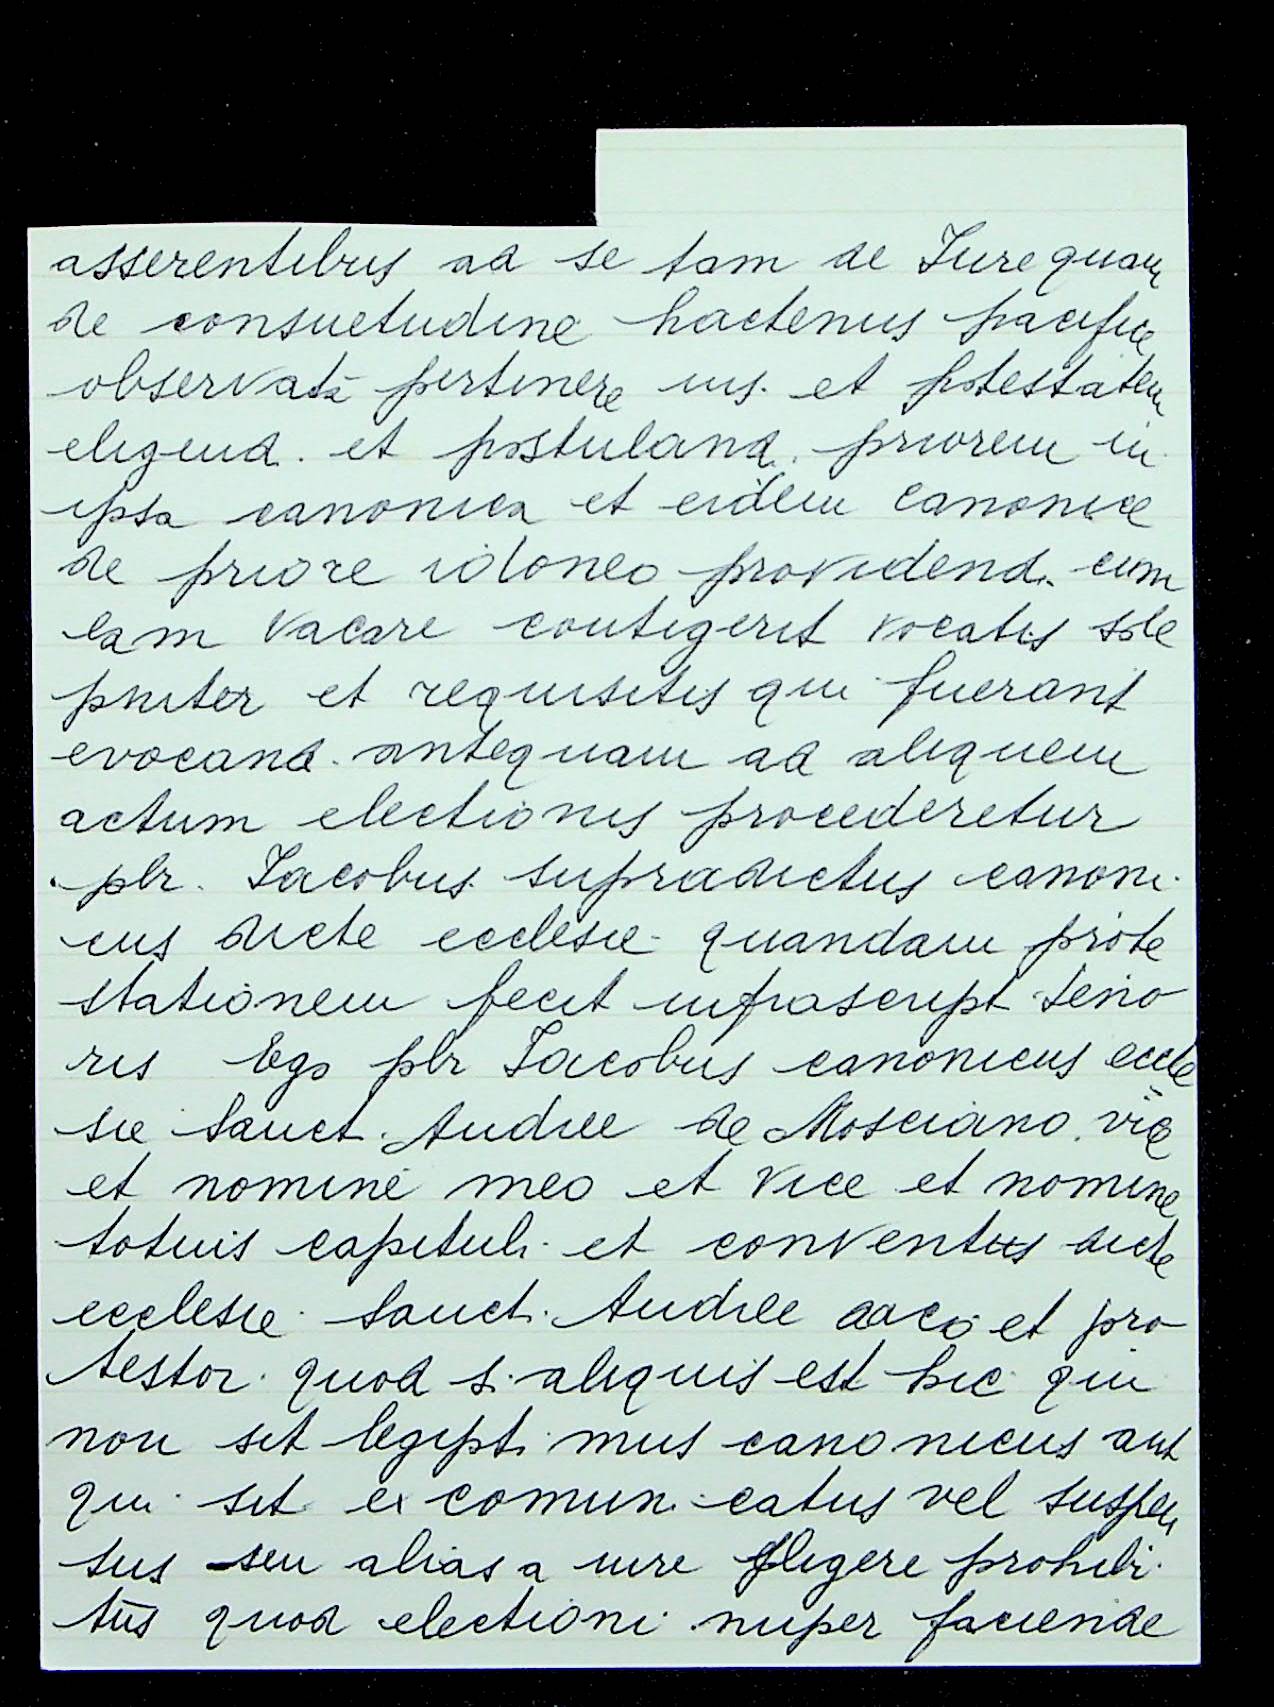 asserentibus ad se tam de Iure quam
de consuetudine hactenus pacifice
observata pertinere ius. et potestatem
eligend. et postuland. priorem in
ipsa canonica et eidem canonice
de priore idoneo providend. cum
eam vacare contigerit vocatis sole
pniter et requisitis qui fuerant
evocand. antequam ad aliquem
actum electionis procederetur
pbr. Iacobus supradictus canoni
cus dicte ecclesie quandam prote
stationem fecit infrascript. teno
ris Ego pbr Iacobus canonicus eccle
sie Sanct. Andree de Mosciano. vice
et nomine meo et vice et nomine
totuis capituli et conventus dicte
ecclesie Sanct. Andree et pro
testor quod si aliquis est hic qui
non sit legiptimus canonicus aut
qui sit excomunicatus vel suspen
sus seu alias a iure eligere prohibi
tus quod electioni nuper faciende